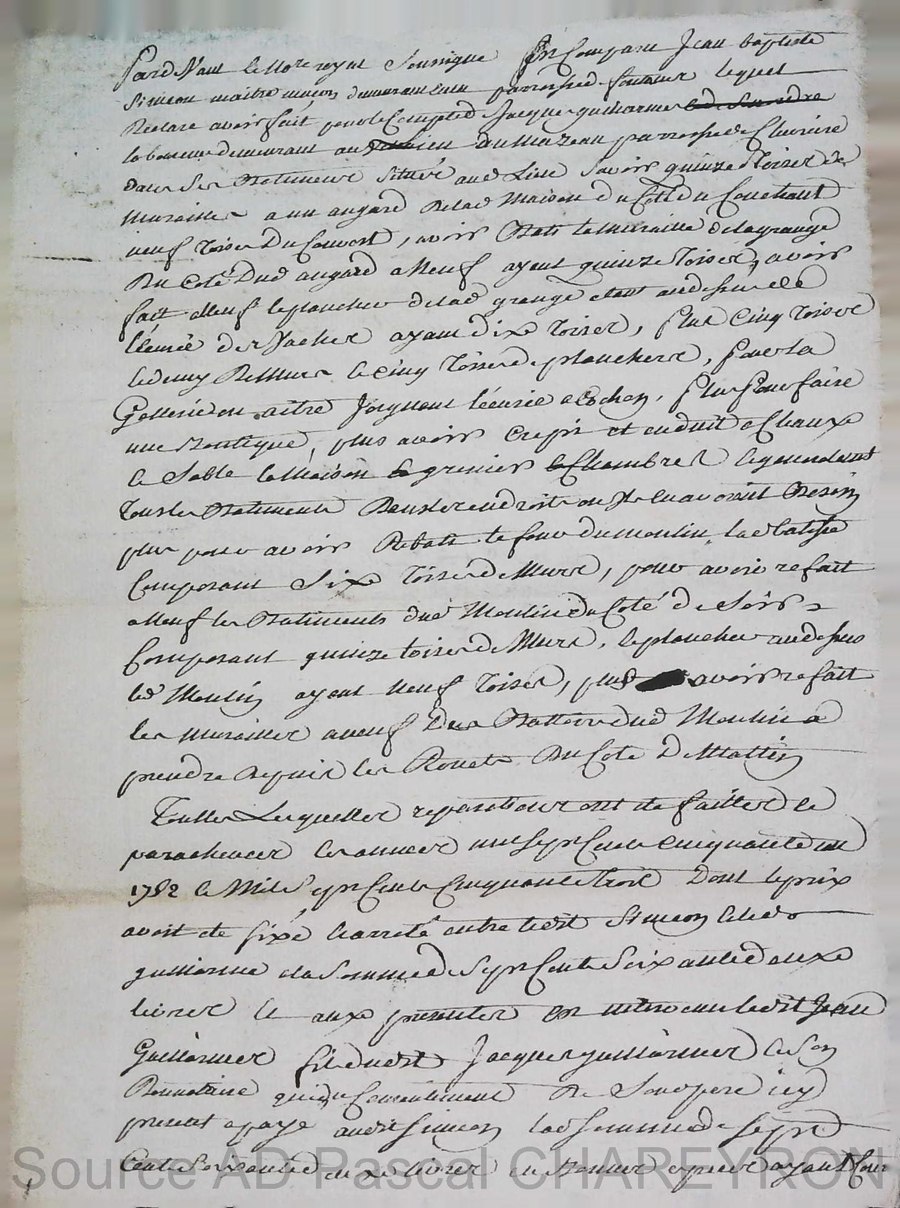 Pard Nant le Nore royal Soussigne fut Comparu Jean baptiste
Simeon maitre maçon demeurant paroisse de lequel
Declare avoir fait pour le Compte de Jacque guillarme
laboureur demeurant au du mazeau parroisse de
dans ses Batiments situés aud Lieu Savoir quinze toises de
murailles a un angard De lad Maison du Coté du Couchant
neuf toises Du Couvert, avoir Bati la Muraille de la grange
Du Coté Dud angard a Neuf ayant quinze toises, avoir
fait a Neuf le plancher de lad grange etant au dessus de
l'écurie des Vaches ayant dixe toises, plus cinq toises
le cinq toises de planchers, pour la
Gallerie ou aitre Joignant l'écurie a Cochon, plus pour faire
une Boutique, plus avoir Crepis et enduit a Chaux
le Sable la Maison le grenier le Chambres
tous les Batiments Dans les endroits ou il en avoient Besoin
plus pour avoir Rebati le four du moulin, lad batisse
Composant Sixe toises de Murs, pour avoir refait
a Neuf les Batiments dud Moulin du Coté de Soir
Composant quinze toises de Murs, le plancher au dessus
led Moulin ayant Neuf toises, plus avoir refait
les Murailles a neuf Dud Moulin a
prendre depuis les Rouets Du Coté De Mattin
Toutes Lesquelles reparations ont ete faittes le
parachevées les années mil sept Cents Cinquante deux
1752 le Mil Sept Cents Cinquante trois Dont le prix
avoit ete fixé l'arreté entre ledit Simeon led
guillarme a la Somme de Sept Cents Soixante deuxe
livres le aux presentes est intervenu ledit Jean
Guillarmer fils dudit Jacques guillarmer le Son
Donnataire qui du Consentement De Son pere icy
present a payé audit Simeon lad Somme de Sept
Cents Soixante deuxe livres en Bonnes especes ayant Cour
Source AD Pascal CHAREYRON